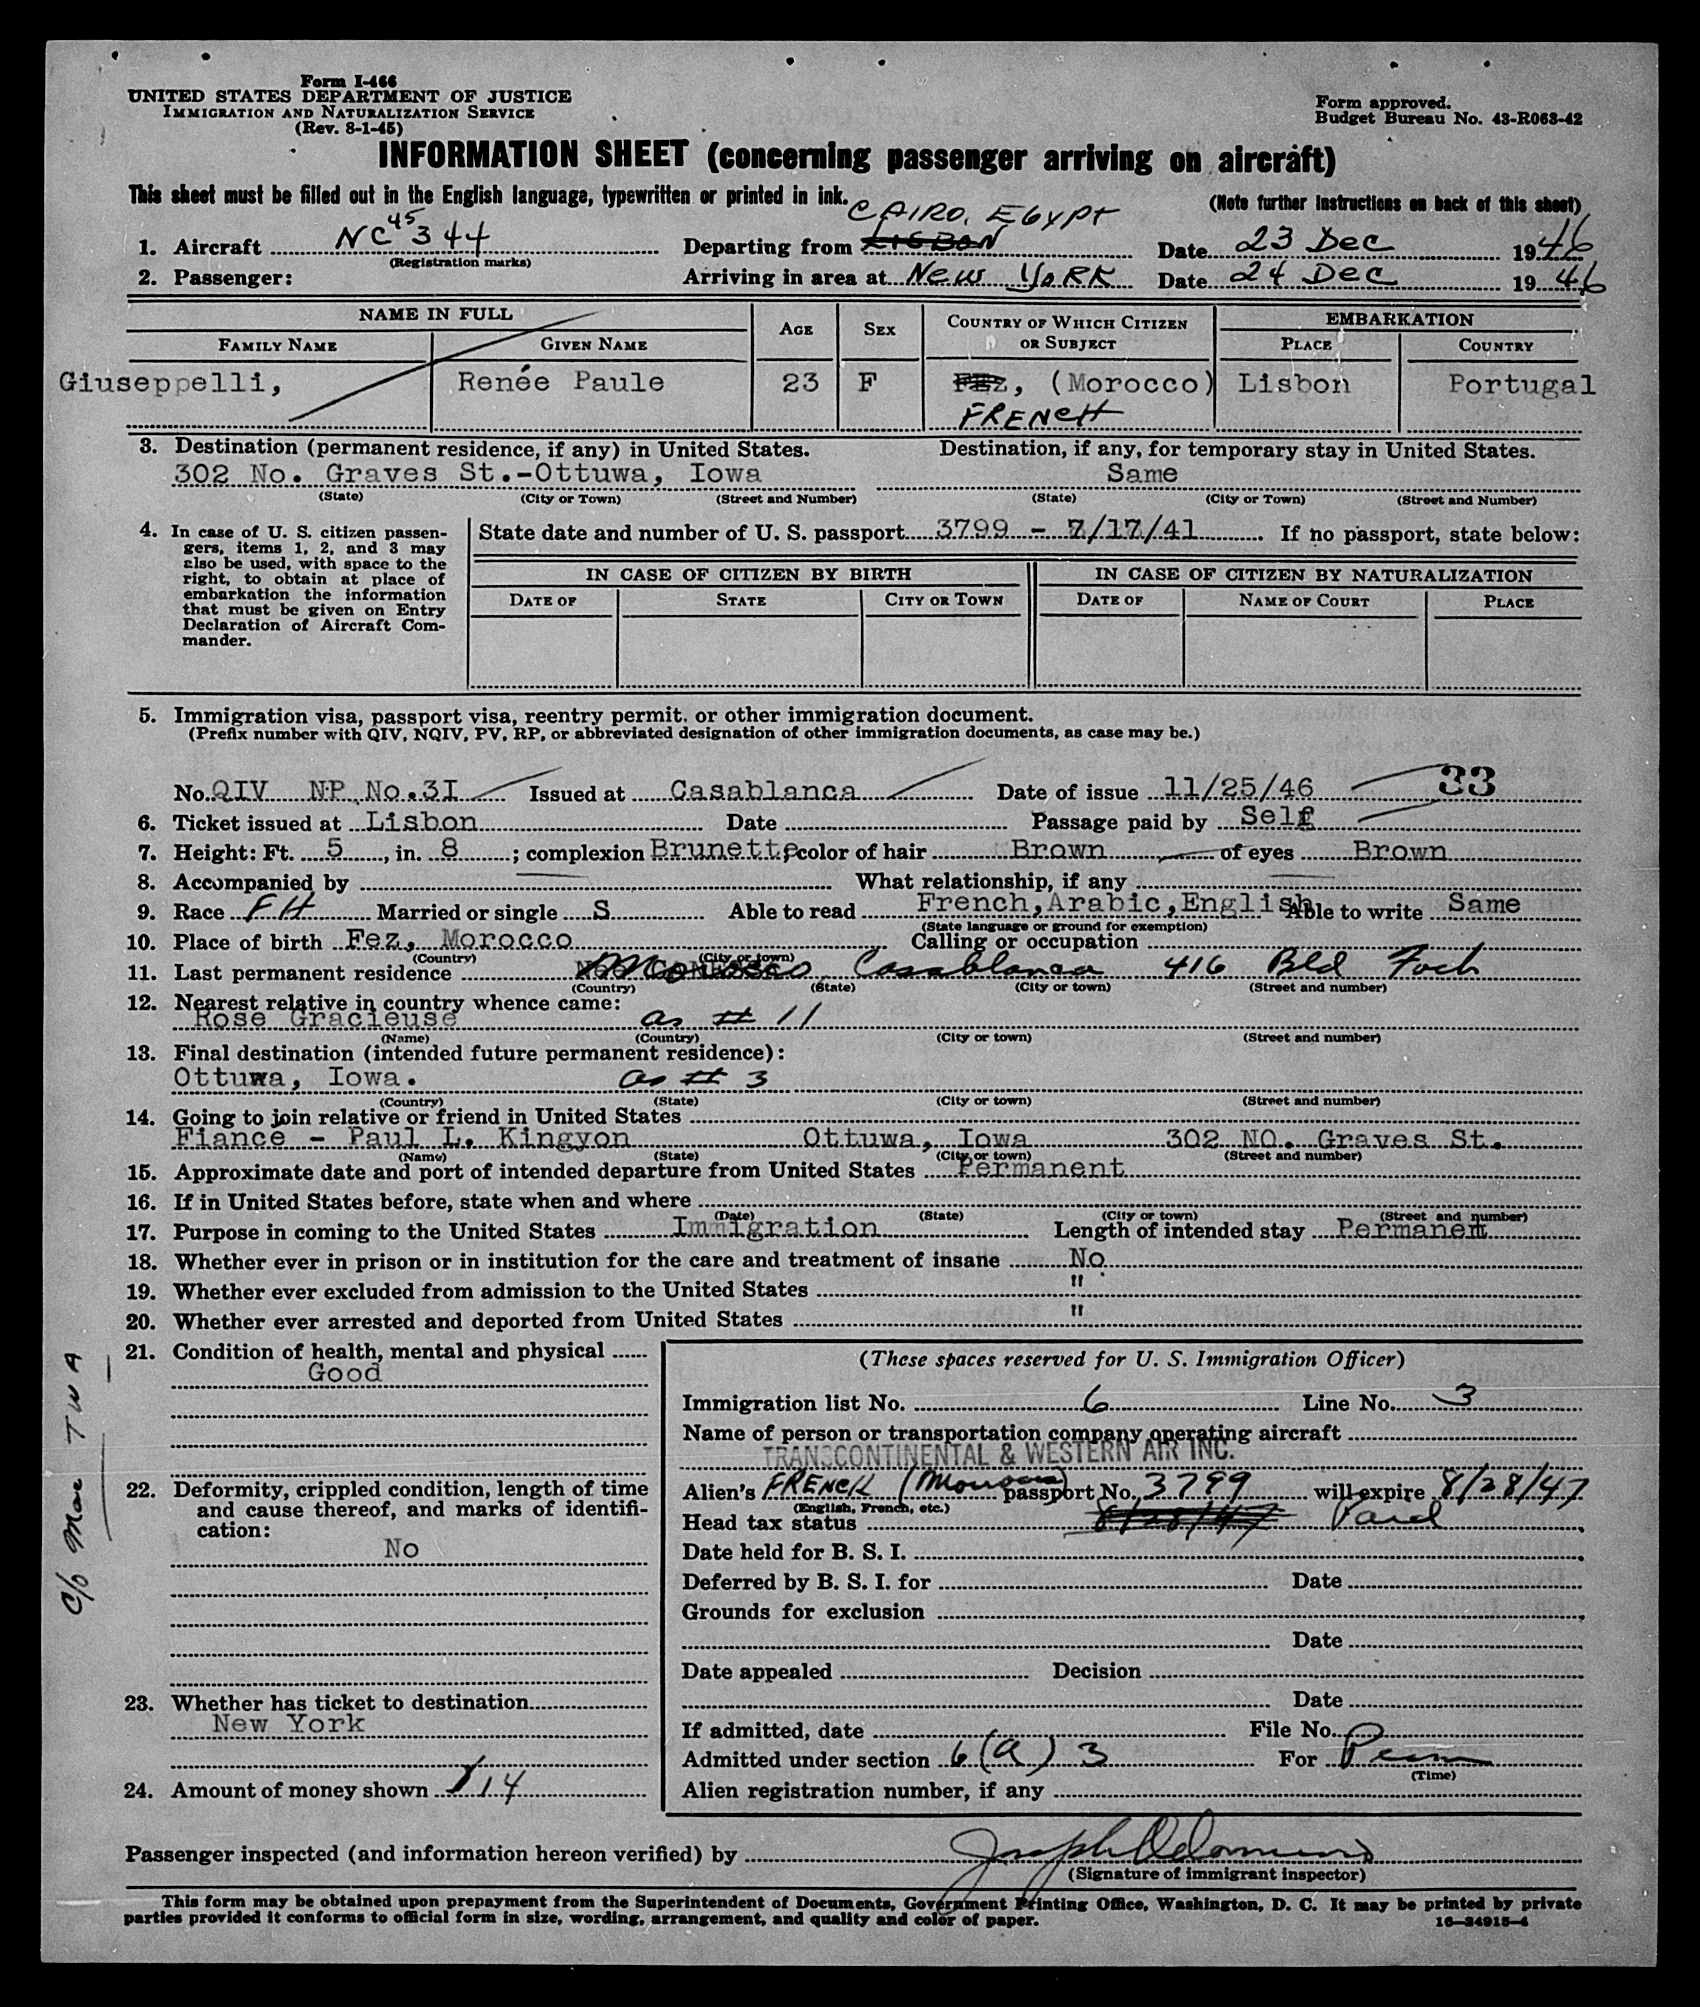 Form I-466
UNITED STATES DEPARTMENT OF JUSTICE
IMMIGRATION AND NATURALIZATION SERVICE
(Rev. 8-1-45)
Form approved.
Budget Bureau No. 43-R063-42
INFORMATION SHEET (concerning passenger arriving on aircraft)
This sheet must be filled out in the English language, typewritten or printed in ink.
(Note further instructions on back of this sheet)
CAIRO, EGYPT
1. Aircraft NC 45344 Departing from LISBON Date 23 Dec 1946
(Registration marks)
2. Passenger: Arriving in area at New York Date 24 Dec 1946
NAME IN FULL AGE SEX COUNTRY OF WHICH CITIZEN OR SUBJECT EMBARKATION
FAMILY NAME GIVEN NAME PLACE COUNTRY
Giuseppelli, Renée Paule 23 F Fez, (Morocco) Lisbon Portugal
FRENCH
3. Destination (permanent residence, if any) in United States. Destination, if any, for temporary stay in United States.
302 No. Graves St.-Ottuwa, Iowa Same
(State) (City or Town) (Street and Number) (State) (City or Town) (Street and Number)
4. In case of U. S. citizen passengers, items 1, 2, and 3 may also be used, with space to the right, to obtain at place of embarkation the information that must be given on Entry Declaration of Aircraft Commander.
State date and number of U. S. passport 3799 - 7/17/41 If no passport, state below:
IN CASE OF CITIZEN BY BIRTH IN CASE OF CITIZEN BY NATURALIZATION
DATE OF STATE CITY OR TOWN DATE OF NAME OF COURT PLACE
5. Immigration visa, passport visa, reentry permit, or other immigration document.
(Prefix number with QIV, NQIV, PV, RP, or abbreviated designation of other immigration documents, as case may be.)
No. QIV NP No.3I Issued at Casablanca Date of issue 11/25/46 33
6. Ticket issued at Lisbon Date Passage paid by Self
7. Height: Ft. 5, in. 8; complexion Brunette; color of hair Brown of eyes Brown
8. Accompanied by What relationship, if any
9. Race FH Married or single S Able to read French,Arabic,English Able to write Same
(State language or ground for exemption)
10. Place of birth Fez, Morocco Calling or occupation
(Country) (City or town)
11. Last permanent residence Morocco, Casablanca 416 Bld Foch
(Country) (State) (City or town) (Street and number)
12. Nearest relative in country whence came:
Rose Gracieuse as # 11
(Name) (Country) (City or town) (Street and number)
13. Final destination (intended future permanent residence):
Ottuwa, Iowa. as # 3
(Country) (State) (City or town) (Street and number)
14. Going to join relative or friend in United States
Fiancé - Paul L. Kingyon Ottuwa, Iowa 302 NO. Graves St.
(Name) (State) (City or town) (Street and number)
15. Approximate date and port of intended departure from United States Permanent
16. If in United States before, state when and where
(Date) (State) (City or town) (Street and number)
17. Purpose in coming to the United States Immigration Length of intended stay Permanent
18. Whether ever in prison or in institution for the care and treatment of insane No
19. Whether ever excluded from admission to the United States "
20. Whether ever arrested and deported from United States "
21. Condition of health, mental and physical
Good
22. Deformity, crippled condition, length of time and cause thereof, and marks of identification:
No
23. Whether has ticket to destination
New York
24. Amount of money shown $14
c/o Mac TWA
(These spaces reserved for U. S. Immigration Officer)
Immigration list No. 6 Line No. 3
Name of person or transportation company operating aircraft
TRANSCONTINENTAL & WESTERN AIR INC.
Alien's FRENCH (Morocco) passport No. 3799 will expire 8/28/47
(English, French, etc.)
Head tax status 8/28/47 Paid
Date held for B. S. I.
Deferred by B. S. I. for Date
Grounds for exclusion
Date
Date appealed Decision
Date
If admitted, date File No.
Admitted under section 6(a) 3 For Perm
(Time)
Alien registration number, if any
Passenger inspected (and information hereon verified) by
(Signature of immigrant inspector)
This form may be obtained upon prepayment from the Superintendent of Documents, Government Printing Office, Washington, D. C. It may be printed by private
parties provided it conforms to official form in size, wording, arrangement, and quality and color of paper.
16-24915-4